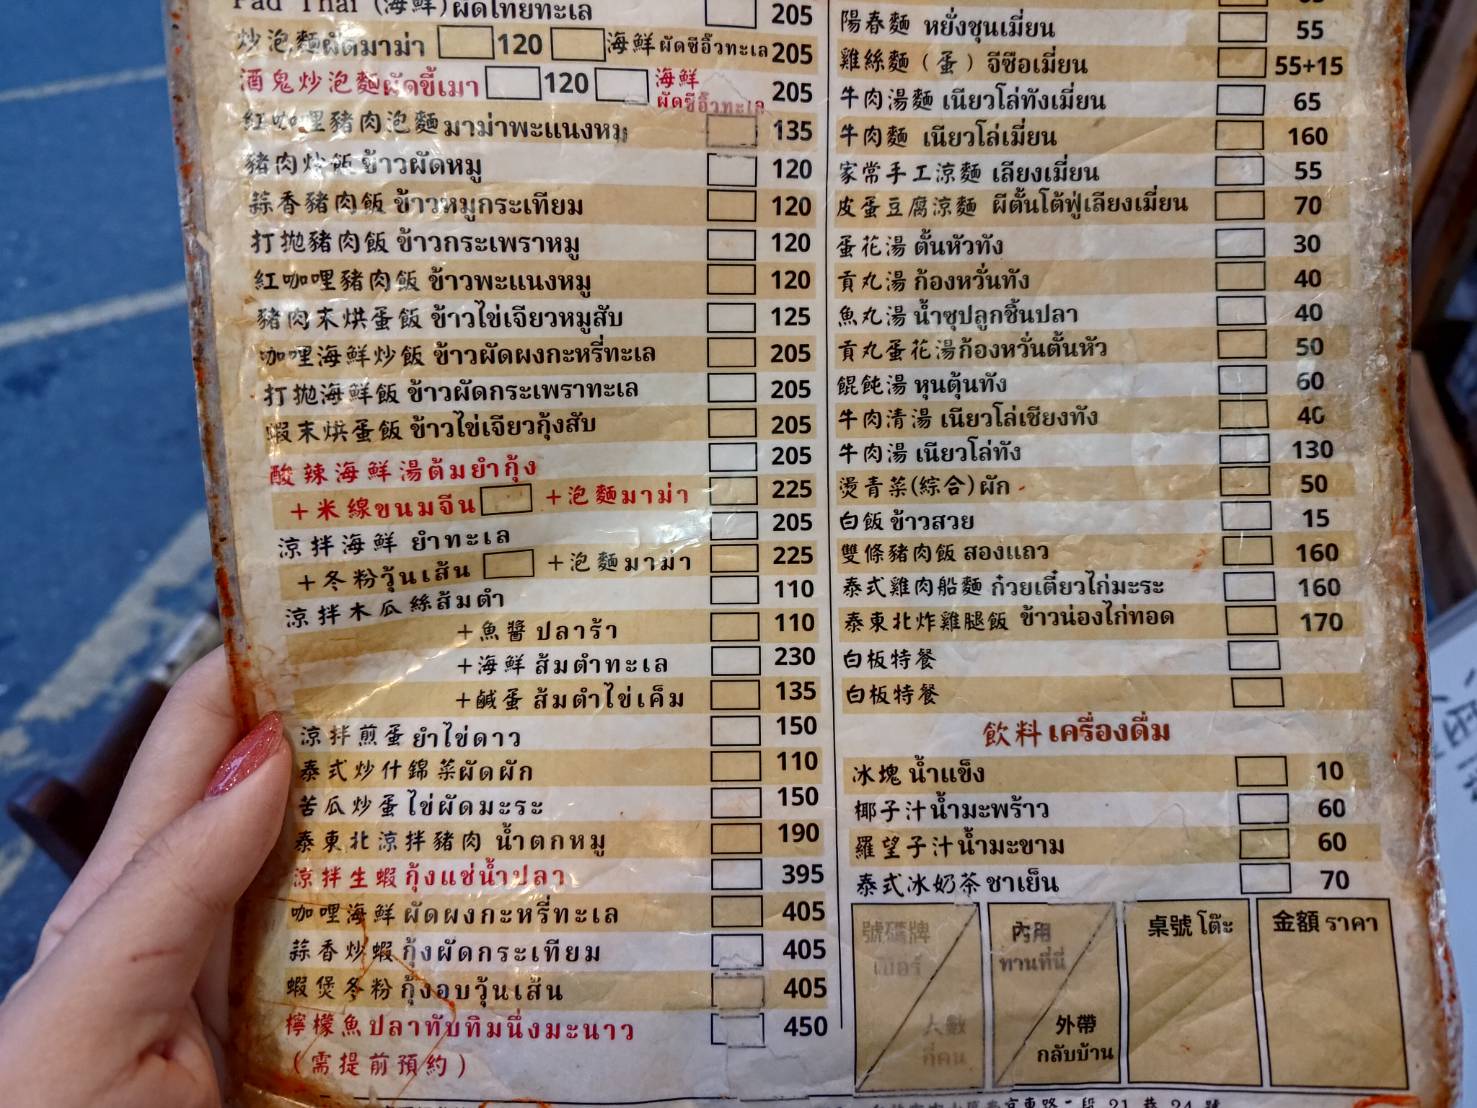 Pad Thai (海鮮)ผัดไทยทะเล 205
炒泡麵ผัดมาม่า 120 海鮮ผัดซีอิ๊วทะเล 205
酒鬼炒泡麵ผัดขี้เมา 120 海鮮ผัดซีอิ๊วทะเล 205
紅咖哩豬肉泡麵มาม่าพะแนงหมู 135
豬肉炒飯ข้าวผัดหมู 120
蒜香豬肉飯ข้าวหมูกระเทียม 120
打拋豬肉飯ข้าวกระเพราหมู 120
紅咖哩豬肉飯ข้าวพะแนงหมู 120
豬肉末烘蛋飯ข้าวไข่เจียวหมูสับ 125
咖哩海鮮炒飯ข้าวผัดผงกะหรี่ทะเล 205
打拋海鮮飯ข้าวผัดกระเพราทะเล 205
蝦末烘蛋飯ข้าวไข่เจียวกุ้งสับ 205
酸辣海鮮湯ต้มยำกุ้ง 205
+米線ขนมจีน +泡麵มาม่า 225
涼拌海鮮 ยำทะเล 205
+冬粉วุ้นเส้น +泡麵มาม่า 225
涼拌木瓜絲ส้มตำ 110
+魚醬 ปลาร้า 110
+海鮮 ส้มตำทะเล 230
+鹹蛋 ส้มตำไข่เค็ม 135
涼拌煎蛋ยำไข่ดาว 150
泰式炒什錦菜ผัดผัก 110
苦瓜炒蛋ไข่ผัดมะระ 150
泰東北涼拌豬肉 น้ำตกหมู 190
涼拌生蝦กุ้งแช่น้ำปลา 395
咖哩海鮮ผัดผงกะหรี่ทะเล 405
蒜香炒蝦กุ้งผัดกระเทียม 405
蝦煲冬粉กุ้งอบวุ้นเส้น 405
檸檬魚ปลาทับทิมนึ่งมะนาว 450
(需提前預約)
陽春麵 หยั่งชุนเมี่ยน 55
雞絲麵(蛋)จีซือเมี่ยน 55+15
牛肉湯麵เนียวโล่ทังเมี่ยน 65
牛肉麵 เนียวโล่เมี่ยน 160
家常手工涼麵 เลียงเมี่ยน 55
皮蛋豆腐涼麵 ผีตั้นโต้ฟู่เลียงเมี่ยน 70
蛋花湯ตั้นหัวทัง 30
貢丸湯ก้องหวั่นทัง 40
魚丸湯น้ำซุปลูกชิ้นปลา 40
貢丸蛋花湯ก้องหวั่นตั้นหัว 50
餛飩湯หุนตุ้นทัง 60
牛肉清湯เนียวโล่เชียงทัง 40
牛肉湯เนียวโล่ทัง 130
燙青菜(綜合)ผัก 50
白飯ข้าวสวย 15
雙條豬肉飯สองแถว 160
泰式雞肉船麵 ก๋วยเตี๋ยวไก่มะระ 160
泰東北炸雞腿飯 ข้าวน่องไก่ทอด 170
白板特餐
白板特餐
飲料เครื่องดื่ม
冰塊 น้ำแข็ง 10
椰子汁น้ำมะพร้าว 60
羅望子汁น้ำมะขาม 60
泰式冰奶茶ชาเย็น 70
號碼牌
เบอร์
人數
กี่คน
內用
ทานที่นี่
外帶
กลับบ้าน
桌號โต๊ะ
金額ราคา